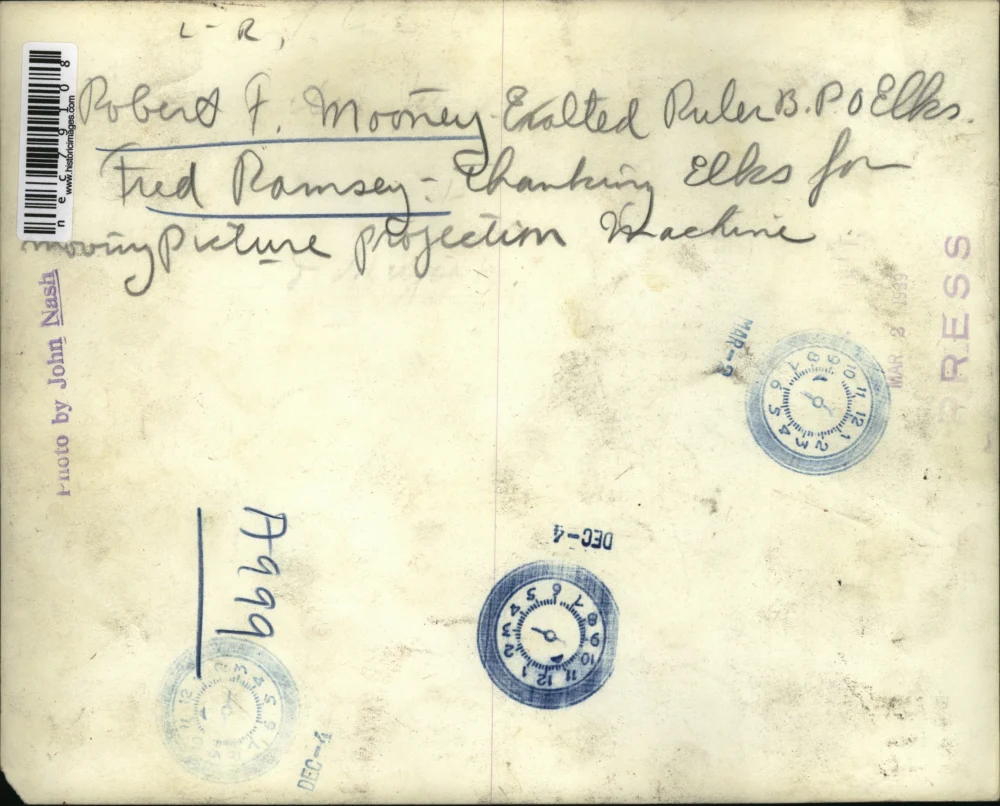 L-R,
Robert F. Mooney-Exalted Ruler B.P.O Elks.
Fred Ramsey- Thanking Elks for
moving Picture projection Machine
www.historicimages.com
nec79108
Photo by John Nash
PRESS
MAR 2 1939
MAR-2
1 2 3 4 5 6 7 8 9 10 11 12
A999
DEC-4
1 2 3 4 5 6 7 8 9 10 11 12
DEC-4